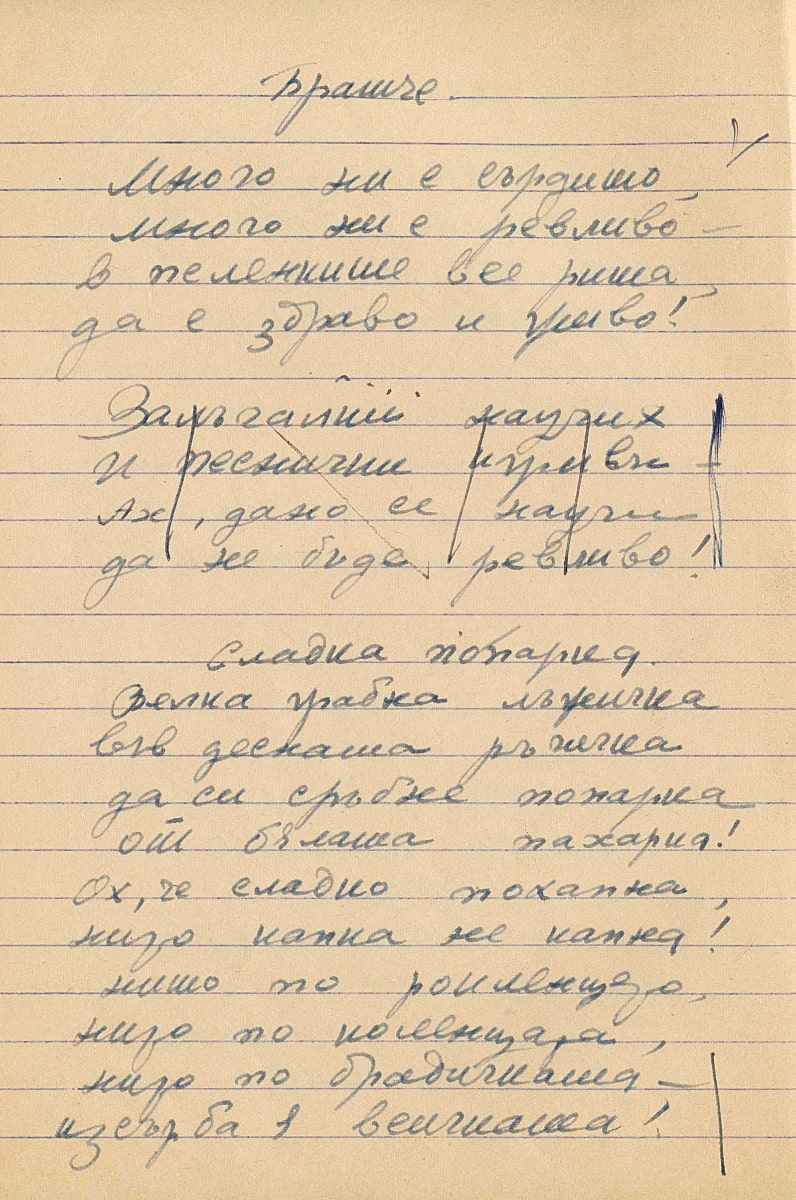 Братче.
Много ни е сърдито,
много ни е ревливо —
в пеленките все рита,
да е здраво и живо!
научих
и песнички игриви —
Ах, дано се научи
да не бъде ревливо!
Сладка попарка.
Велка грабна лъжичка
във десната ръчичка
да си сръбне попарка
от бялата пахарка!
Ох, че сладко похапна,
нито капка не капна!
нито по
нито по коленцата,
нито по брадичката —
изсърба я всичката!